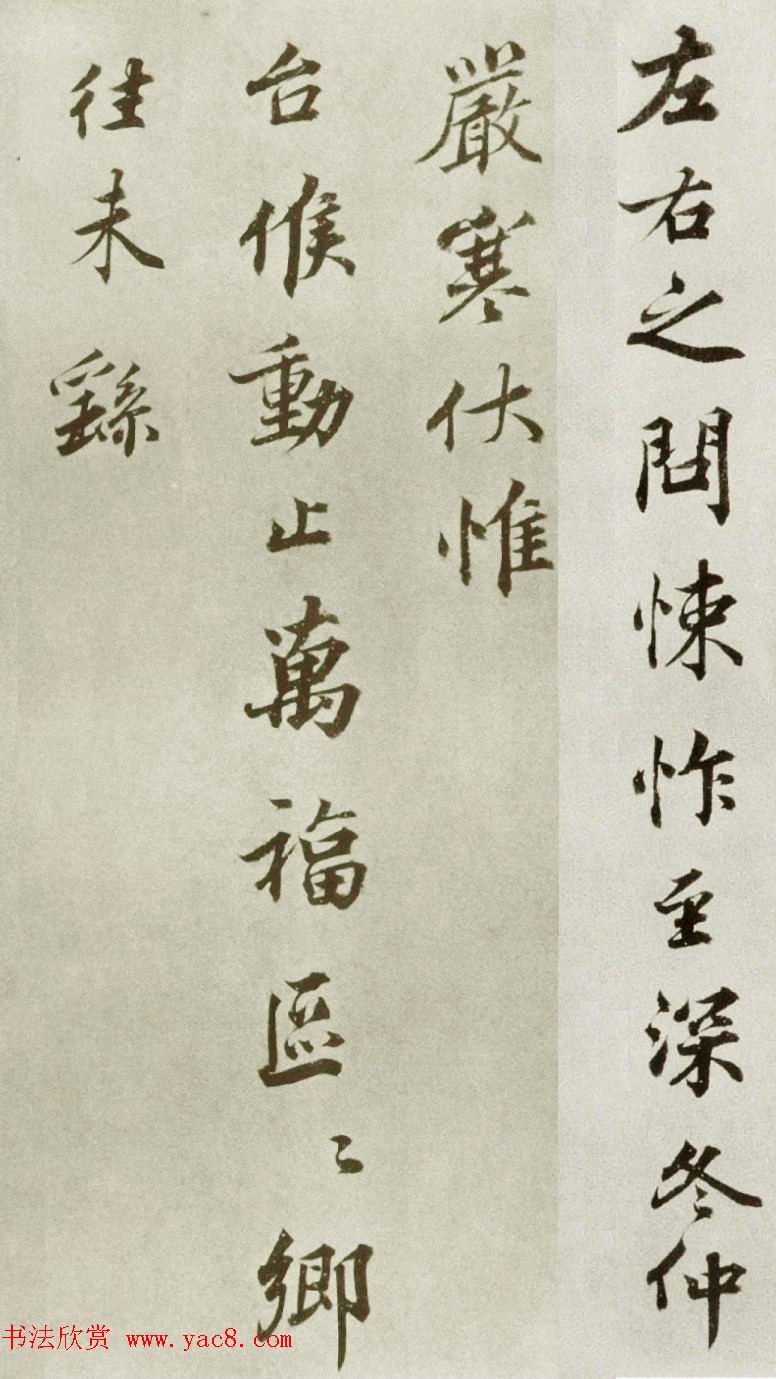 左右之問悚怍至深冬仲
嚴寒伏惟
台候動止萬福區〻鄉
往未繇
书法欣赏 www.yac8.com